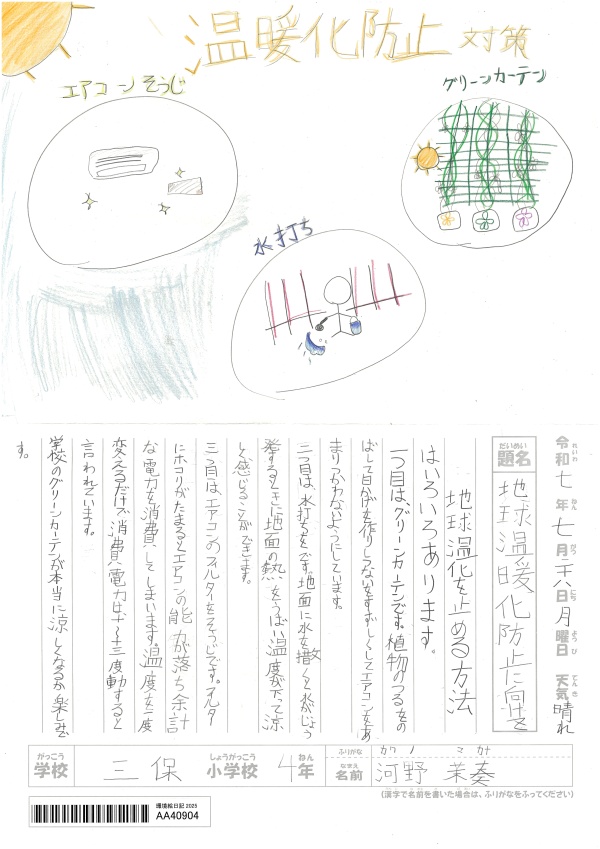 温暖化防止 対策
エアコンそうじ
グリーンカーテン
水打ち
令和七年七月二八日月曜日 天気晴れ
れいわ ねん がつ にち ようび てんき
だいめい
題名 地球温暖化防止に向けて
地球温化を止める方法
はいろいろあります。
一つ目は、グリーンカーテンです。植物のつるをの
ばして日かげを作りしつないをすずしくしてエアコンをあ
まりつかわないようにしています。
二つ目は、水打ちです。地面に水を撒くと水がじょう
発するときに地面の熱をうばい温度が下って涼
しく感じることができます。
三つ目はエアコンのフィルターをそうじです。フィルター
にホコリがたまるとエアコンの能力が落ち余計
な電力を消費してしまいます。温度を一度
変えるだけで消費電力は十〜十三度動すると
言われています。
学校のグリーンカーテンが本当に涼しくなるか楽しみで
す。
がっこう しょうがっこう ねん ふりがな カワノ マカナ
学校 三保 小学校 4年 なまえ 名前 河野 茉奏
(漢字で名前を書いた場合は、ふりがなをふってください)
環境絵日記 2025
AA40904